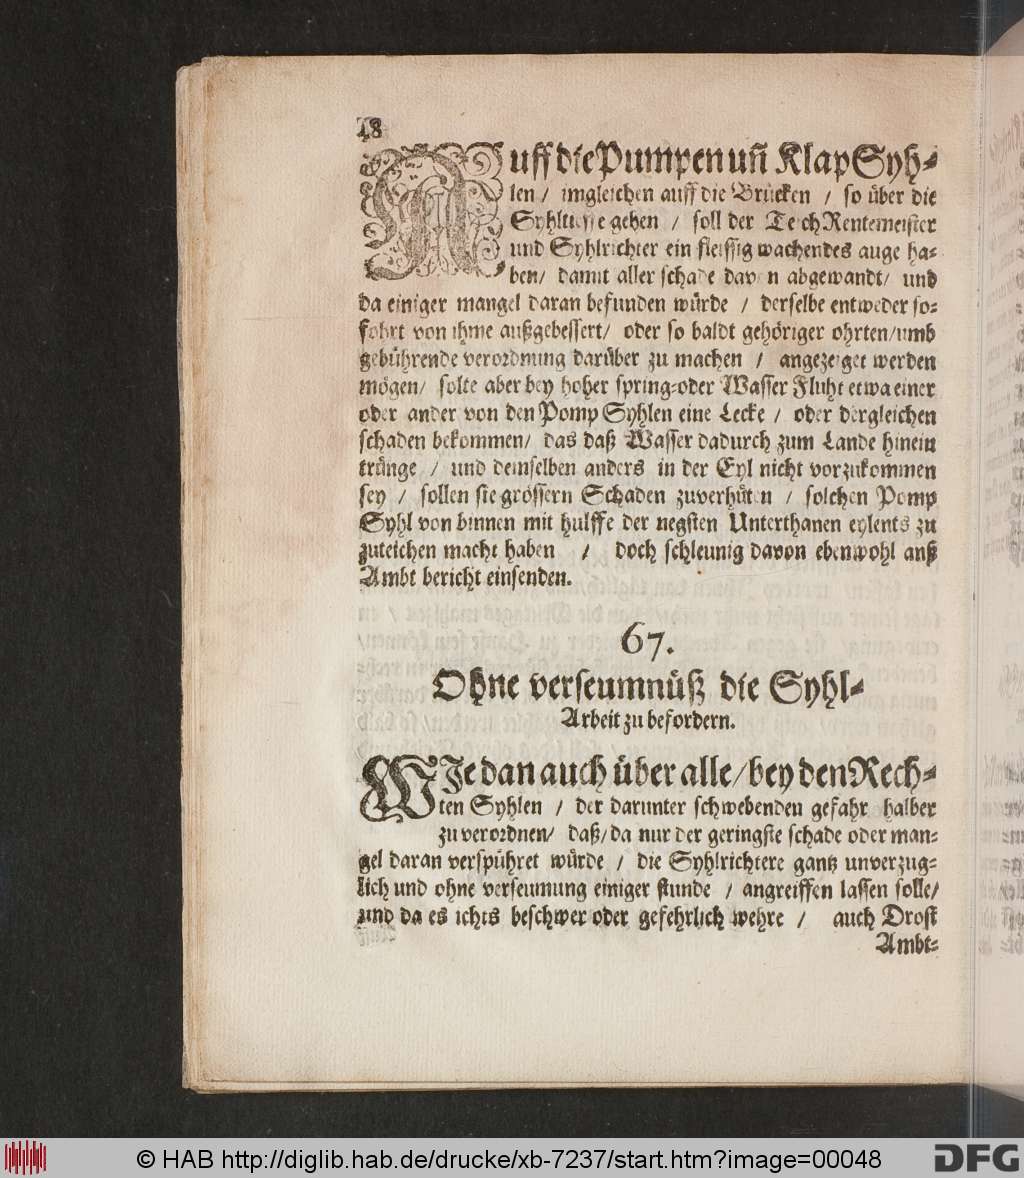 48
AUff die Pumpen uñ Klap Syh-
len / imgleichen auff die Brücken / so über die
Syhltieffe gehen / soll der Teich Rentemeister
und Syhlrichter ein fleissig wachendes auge ha-
ben/ damit aller schade davon abgewandt/ und
da einiger mangel daran befunden würde / derselbe entweder so-
fohrt von ihme außgebessert/ oder so baldt gehöriger ohrten/umb
gebührende verordnung darüber zu machen / angezeiget werden
mögen/ solte aber bey hoher spring-oder Wasser Fluht etwa einer
oder ander von den Pomp Syhlen eine Lecke / oder dergleichen
schaden bekommen/ das daß Wasser dadurch zum Lande hinein
trünge / und demselben anders in der Eyl nicht vorzukommen
sey / sollen sie grössern Schaden zuverhüten / solchen Pomp
Syhl von binnen mit hulffe der negsten Unterthanen eylents zu
zuteichen macht haben / doch schleunig davon ebenwohl anß
Ambt bericht einsenden.
67.
Ohne verseumnüß die Syhl-
Arbeit zu befordern.
WJe dan auch über alle/bey den Rech-
ten Syhlen / der darunter schwebenden gefahr halber
zu verordnen/ daß/da nur der geringste schade oder man-
gel daran verspühret würde / die Syhlrichtere gantz unverzug-
lich und ohne verseumung einiger stunde / angreiffen lassen solle/
und da es ichts beschwer oder gefehrlich wehre / auch Drost
Ambt-
© HAB http://diglib.hab.de/drucke/xb-7237/start.htm?image=00048
DFG